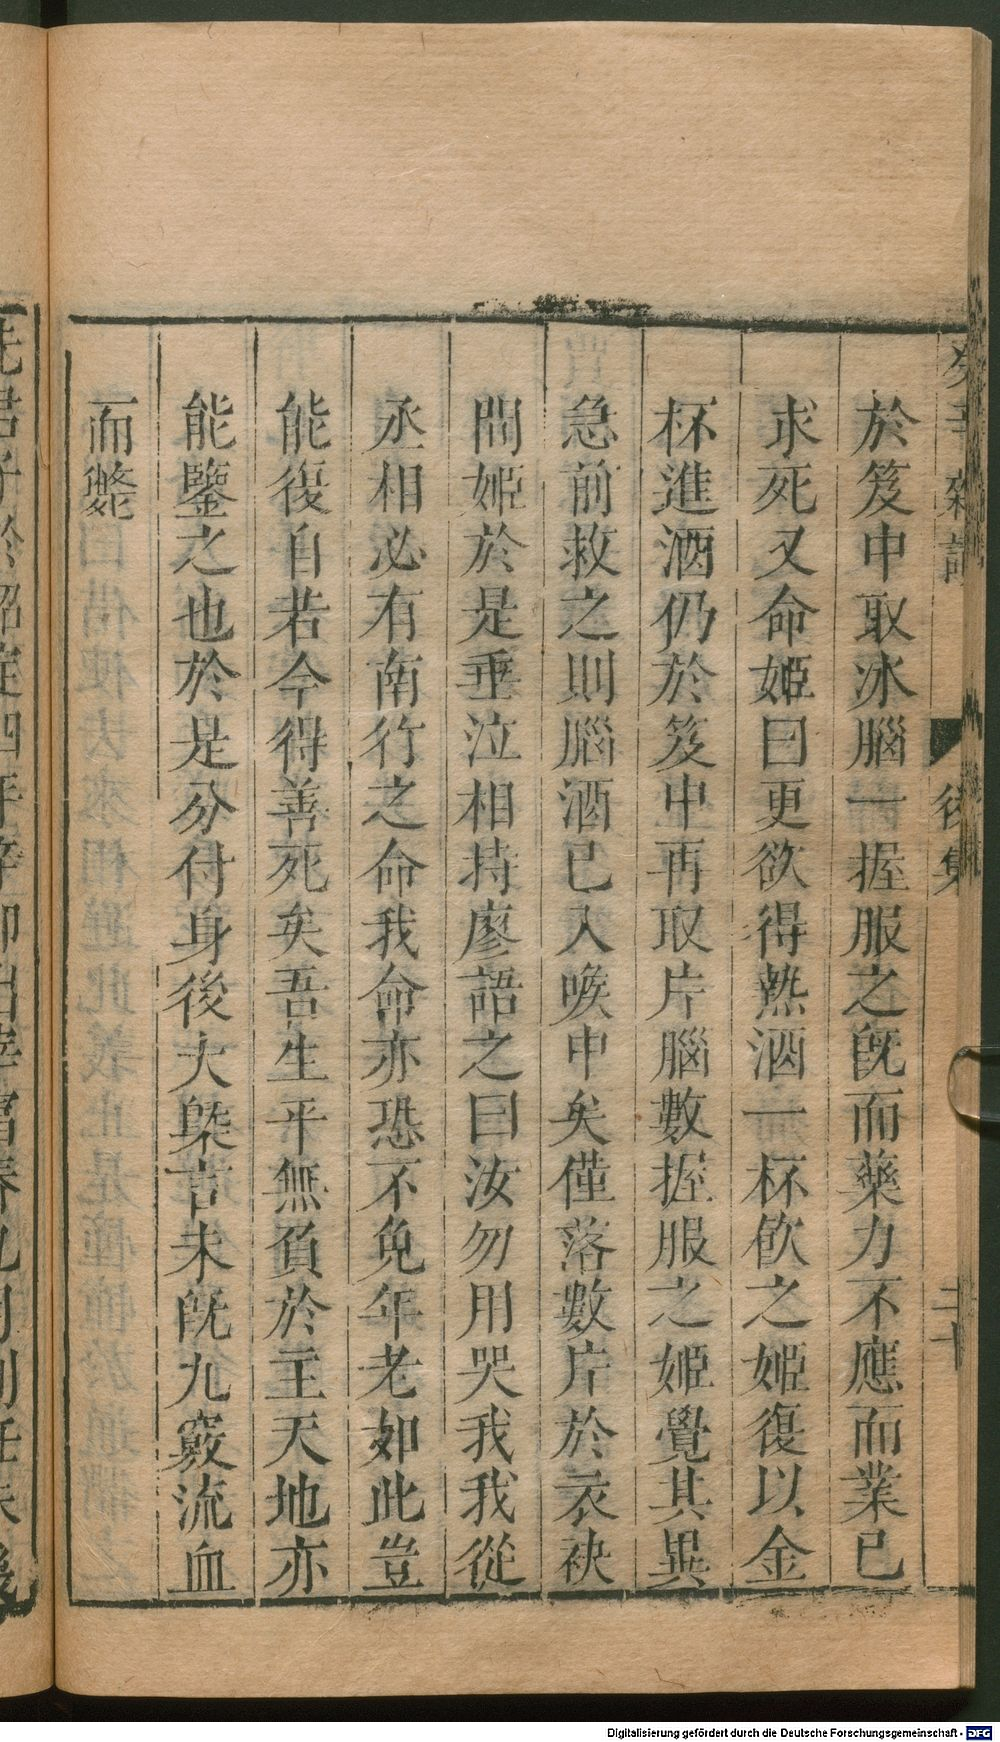 癸辛雜識
後集
二十
於笈中取冰腦一握服之旣而藥力不應而業已
求死又命姬曰更欲得熱酒一杯飲之姬復以金
杯進酒仍於笈中再取片腦數握服之姬覺其異
急前救之則腦酒已入喉中矣僅落數片於衣袂
間姬於是垂泣相持廖語之曰汝勿用哭我我從
丞相必有南行之命我命亦恐不免年老如此豈
能復自若今得善死矣吾生平無負於主天地亦
能鑒之也於是分付身後大槩言未旣九竅流血
而斃
Digitalisierung gefördert durch die Deutsche Forschungsgemeinschaft - DFG